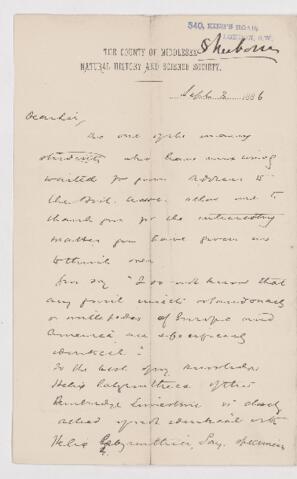 540, KING'S ROAD,
LONDON, S.W.
Sherborn
THE COUNTY OF MIDDLESEX
NATURAL HISTORY AND SCIENCE SOCIETY.
Sept 3 1886
Dear Sir,
As one of the many
students who have
waited for your Address to
the Brit. Assoc. allow me to
thank you for the interesting
matter you have given us
to think over
You say "I do not know that
any fossil
or of Europe and
America are specifically
identical."
To the best of my knowledge
Helix labyrinthica of the
Bembridge Limestone is closely
allied if not identical with
Helix labyrinthica, Say, specimens